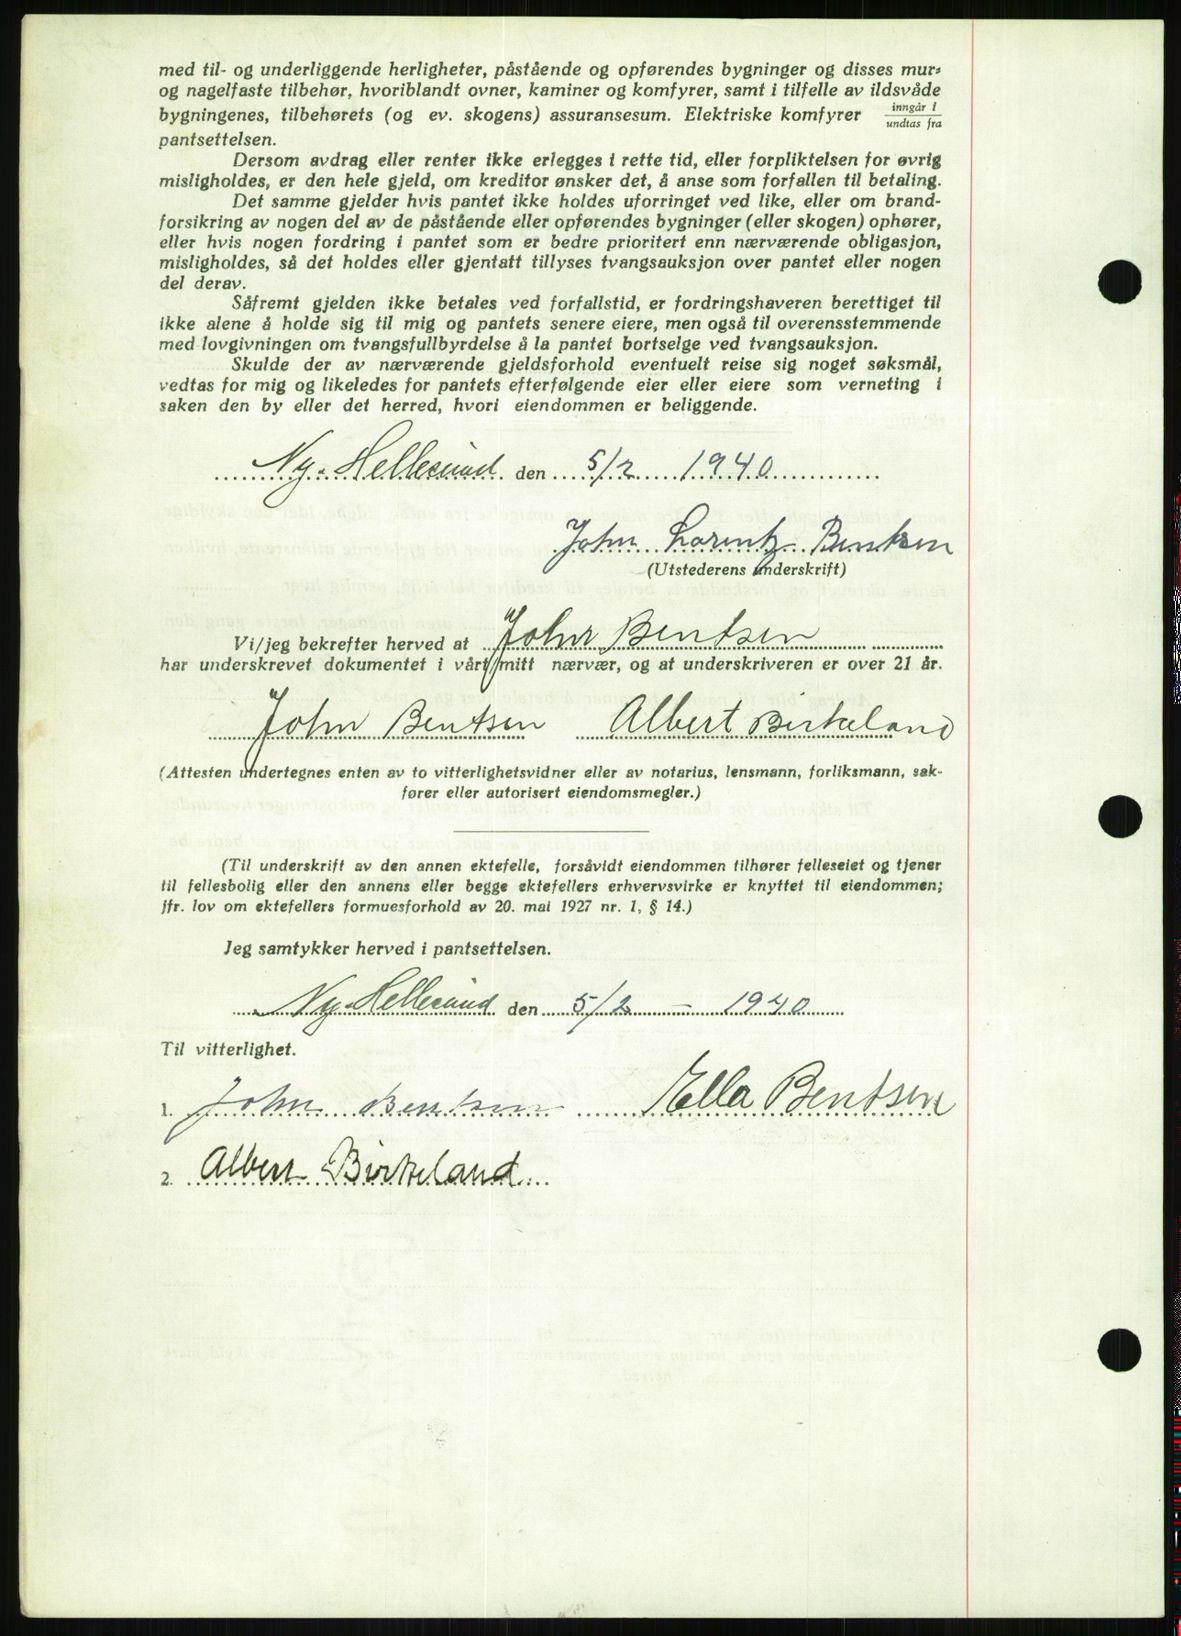 med til- og underliggende herligheter, påstående og opførendes bygninger og disses mur-
og nagelfaste tilbehør, hvoriblandt ovner, kaminer og komfyrer, samt i tilfelle av ildsvåde
bygningenes, tilbehørets (og ev. skogens) assuransesum. Elektriske komfyrer inngår i
undtas fra
pantsettelsen.
Dersom avdrag eller renter ikke erlegges i rette tid, eller forpliktelsen for øvrig
misligholdes, er den hele gjeld, om kreditor ønsker det, å anse som forfallen til betaling.
Det samme gjelder hvis pantet ikke holdes uforringet ved like, eller om brand-
forsikring av nogen del av de påstående eller opførendes bygninger (eller skogen) ophører,
eller hvis nogen fordring i pantet som er bedre prioritert enn nærværende obligasjon,
misligholdes, så det holdes eller gjentatt tillyses tvangsauksjon over pantet eller nogen
del derav.
Såfremt gjelden ikke betales ved forfallstid, er fordringshaveren berettiget til
ikke alene å holde sig til mig og pantets senere eiere, men også til overensstemmende
med lovgivningen om tvangsfullbyrdelse å la pantet bortselge ved tvangsauksjon.
Skulde der av nærværende gjeldsforhold eventuelt reise sig noget søksmål,
vedtas for mig og likeledes for pantets efterfølgende eier eller eiere som verneting i
saken den by eller det herred, hvori eiendommen er beliggende.
Ny-Hellesund den 5/2 1940
John Lorentz Bentsen
(Utstederens underskrift)
Vi/jeg bekrefter herved at John Bentsen
har underskrevet dokumentet i vårt/mitt nærvær, og at underskriveren er over 21 år.
John Bentsen Albert Birkeland
(Attesten undertegnes enten av to vitterlighetsvidner eller av notarius, lensmann, forliksmann, sak-
fører eller autorisert eiendomsmegler.)
(Til underskrift av den annen ektefelle, forsåvidt eiendommen tilhører felleseiet og tjener
til fellesbolig eller den annens eller begge ektefellers erhvervsvirke er knyttet til eiendommen;
jfr. lov om ektefellers formuesforhold av 20. mai 1927 nr. 1, § 14.)
Jeg samtykker herved i pantsettelsen.
Ny-Hellesund den 5/2 - 1940
Til vitterlighet.
1. John Bentsen Ella Bentsen
2. Albert Birkeland